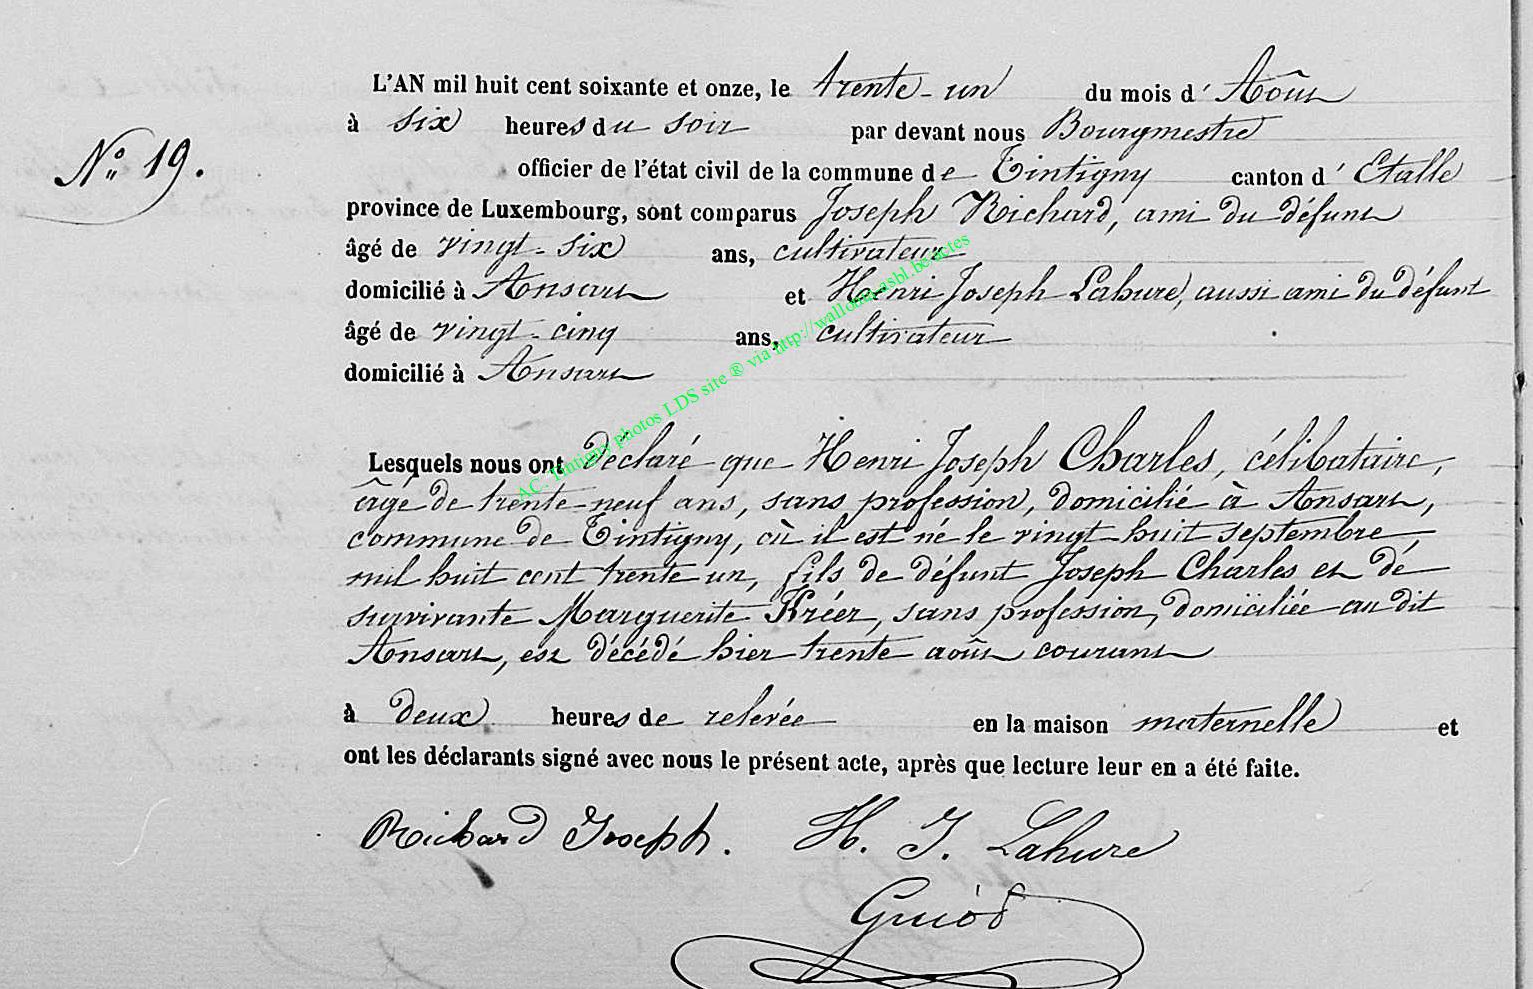 L'AN mil huit cent soixante et onze, le trente-un du mois d' Août
à six heures du soir par devant nous Bourgmestre
N° 19.
officier de l'état civil de la commune de Tintigny canton d' Etalle
province de Luxembourg, sont comparus Joseph Richard, ami du défunt
âgé de vingt-six ans, cultivateur
domicilié à Ansart et Henri Joseph Lahure, aussi ami du défunt
âgé de vingt-cinq ans, cultivateur
domicilié à Ansart
AC. Tintigny photos LDS site ® via http://wallonia-asbl.be/actes
Lesquels nous ont déclaré que Henri Joseph Charles, célibataire,
âgé de trente-neuf ans, sans profession, domicilié à Ansart,
commune de Tintigny, où il est né le vingt huit septembre
mil huit cent trente un, fils de défunt Joseph Charles et de
survivante Marguerite Kréer, sans profession, domiciliée au dit
Ansart, est décédé hier trente août courant
à deux heures de relevée en la maison maternelle et
ont les déclarants signé avec nous le présent acte, après que lecture leur en a été faite.
Richard Joseph. H. J. Lahure
Guiot